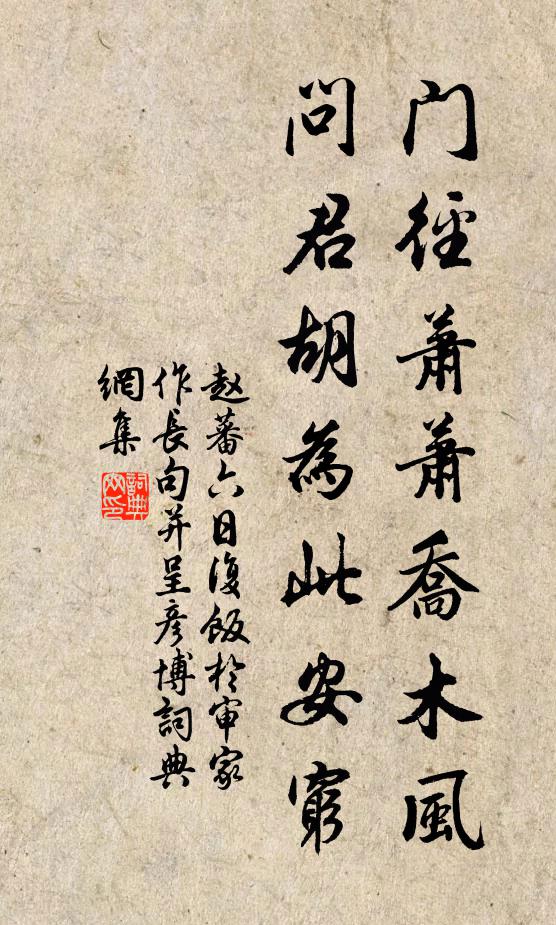 門徑蕭蕭喬木風
問君胡為此安窮
赵蕃六日復飯於审家
作長句并呈彥博詞典
網集
詞典網印